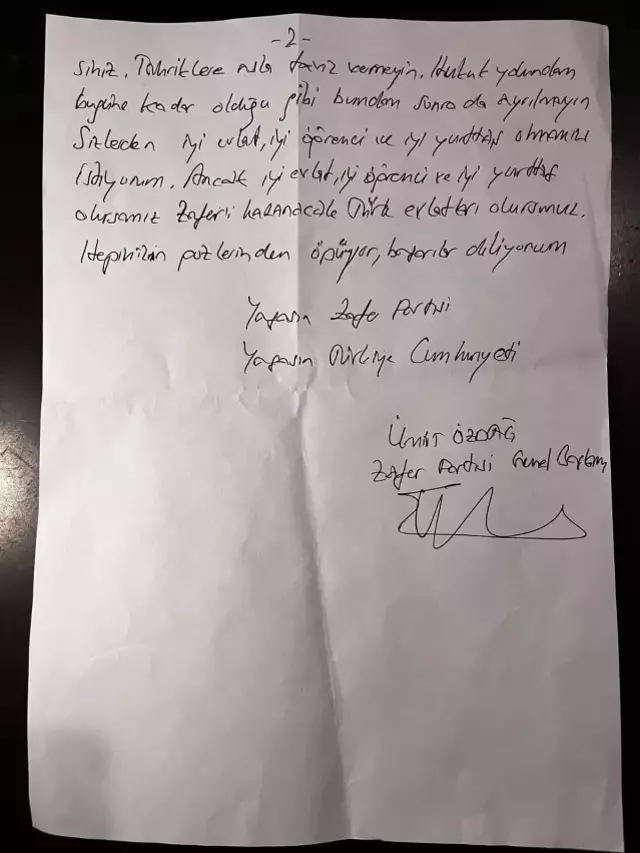 -2-
siniz. Tahriklere asla taviz vermeyin. Hukuk yolundan
bugüne kadar olduğu gibi bundan sonra da ayrılmayın
Sizlerden iyi evlat, iyi öğrenci ve iyi yurttaş olmanızı
istiyorum. Ancak iyi evlat, iyi öğrenci ve iyi yurttaş
olursanız Zafer'i kazanacak Türk evlatları olursunuz.
Hepinizin gözlerinden öpüyor, başarılar diliyorum
Yaşasın Zafer Partisi
Yaşasın Türkiye Cumhuriyeti
Ümit ÖZDAĞ
Zafer Partisi Genel Başkanı